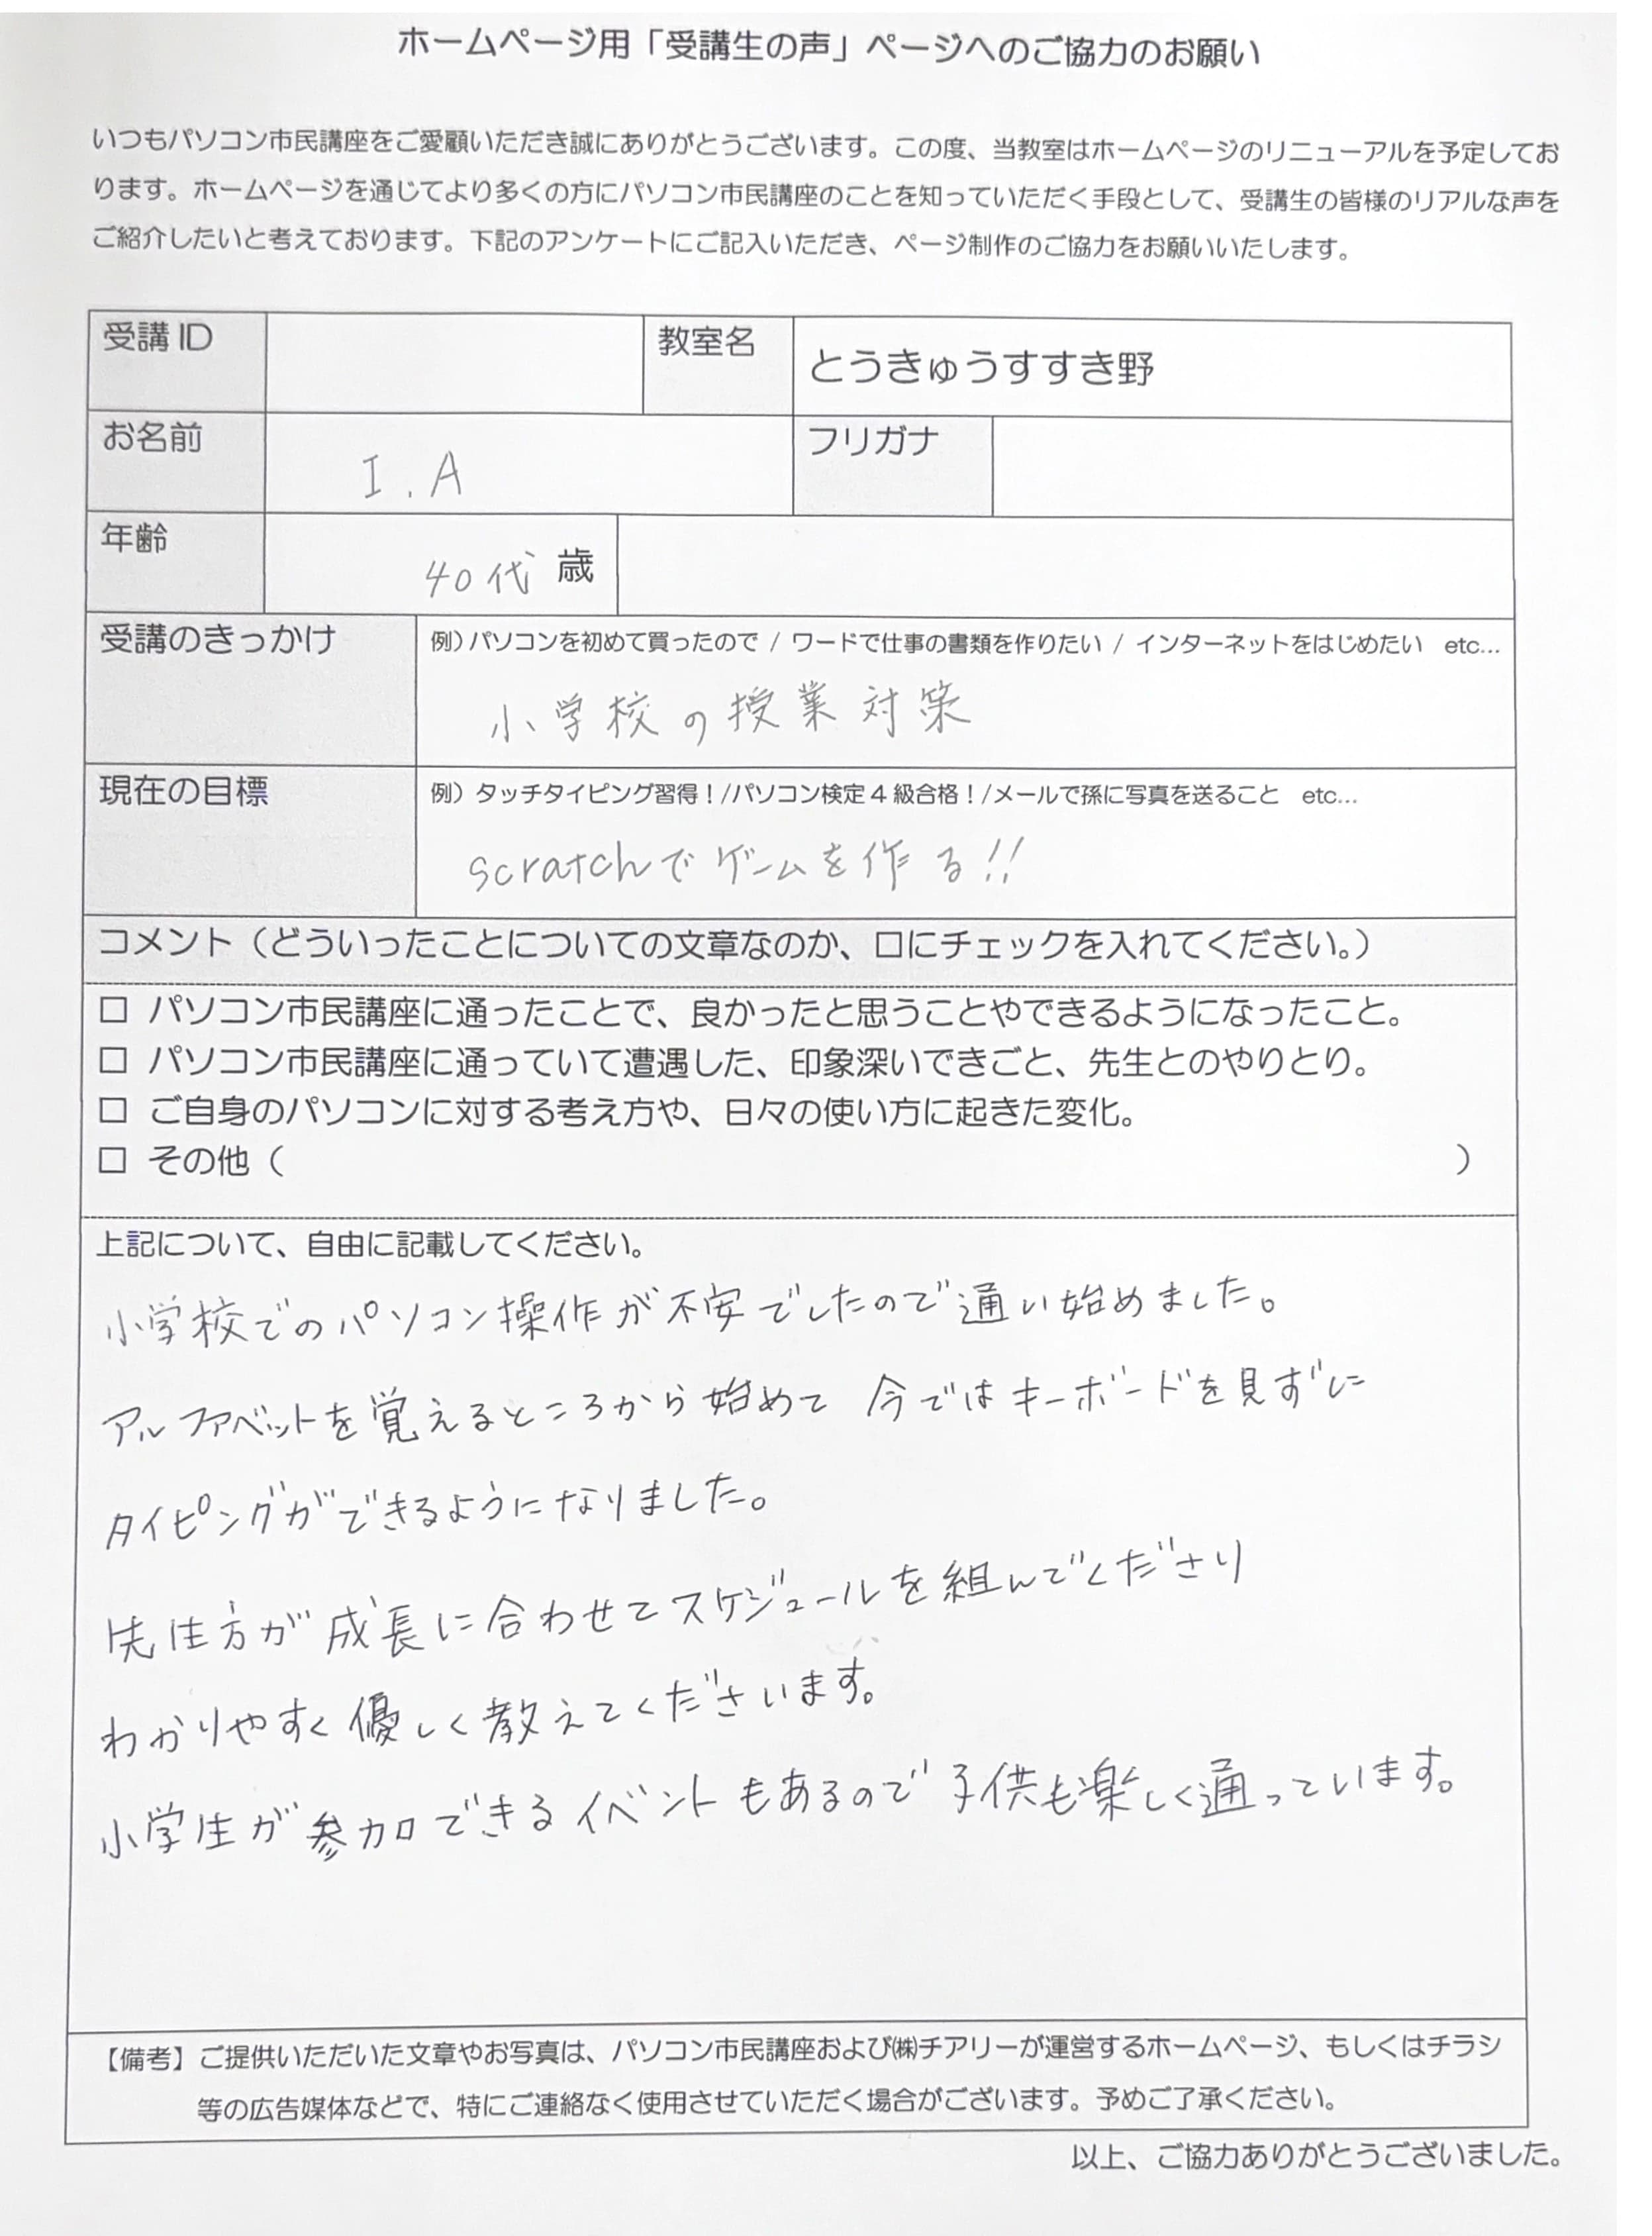 ホームページ用「受講生の声」ページへのご協力のお願い
いつもパソコン市民講座をご愛顧いただき誠にありがとうございます。この度、当教室はホームページのリニューアルを予定してお
ります。ホームページを通じてより多くの方にパソコン市民講座のことを知っていただく手段として、受講生の皆様のリアルな声を
ご紹介したいと考えております。下記のアンケートにご記入いただき、ページ制作のご協力をお願いいたします。
受講 ID 教室名 とうきゅうすすき野
お名前 I.A フリガナ
年齢 40代 歳
受講のきっかけ 例）パソコンを初めて買ったので / ワードで仕事の書類を作りたい / インターネットをはじめたい etc…
小学校の授業対策
現在の目標 例）タッチタイピング習得！/パソコン検定4級合格！/メールで孫に写真を送ること etc…
scratchでゲームを作る!!
コメント（どういったことについての文章なのか、口にチェックを入れてください。）
□ パソコン市民講座に通ったことで、良かったと思うことやできるようになったこと。
□ パソコン市民講座に通っていて遭遇した、印象深いできごと、先生とのやりとり。
□ ご自身のパソコンに対する考え方や、日々の使い方に起きた変化。
□ その他（ ）
上記について、自由に記載してください。
小学校でのパソコン操作が不安でしたので通い始めました。
アルファベットを覚えるところから始めて 今ではキーボードを見ずに
タイピングができるようになりました。
先生方が成長に合わせてスケジュールを組んでくださり
わかりやすく優しく教えてくださいます。
小学生が参加できるイベントもあるので子供も楽しく通っています。
【備考】ご提供いただいた文章やお写真は、パソコン市民講座および㈱チアリーが運営するホームページ、もしくはチラシ
等の広告媒体などで、特にご連絡なく使用させていただく場合がございます。予めご了承ください。
以上、ご協力ありがとうございました。